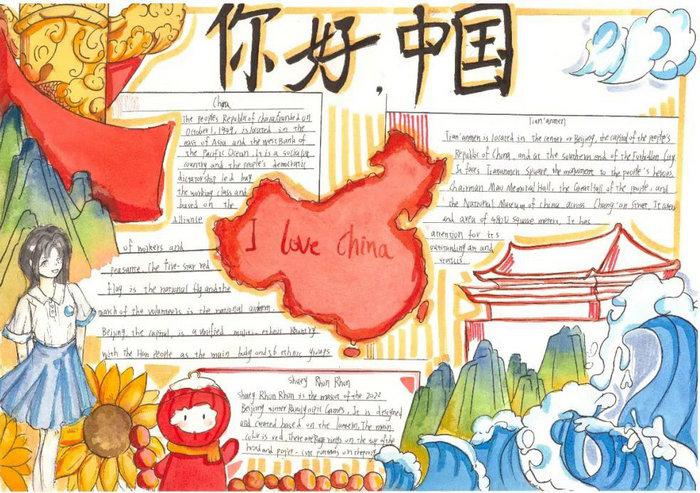 你好,中国
China
The people's Republic of china, founded on
October 1, 1949, is located in the
east of Asia and the west Bank of
the Pacific Ocean. It is a socialist
country and the people's democratic
dictatorship led by
the working class and
based on the
alliance
of workers and
peasants. The five-star red
flag is the national flag and the
march of the volunteers is the national anthem.
Beijing, the capital, is a unified multi-ethnic country
with the Han People as the main body and 56 ethnic groups
I love China
Tian'anmen
Tian'anmen is located in the center of Beijing, the capital of the people's
Republic of China, and at the southern end of the Forbidden City.
It faces Tiananmen Square, the monument to the people's heroes
Chairman Mao Memorial Hall, the Great Hall of the people and
the National Museum of China across Chang'an Street. It covers
and area of 4800 square metres. It has
attention for its
outstanding art and
status.
Shuey Rhon Rhon
Shuey Rhon Rhon is the mascot of the 2022
Beijing winter Paralympic Games. It is designed
and created based on the lantern. The main
color is red. There are on the top of the
head and paper-cut patterns on